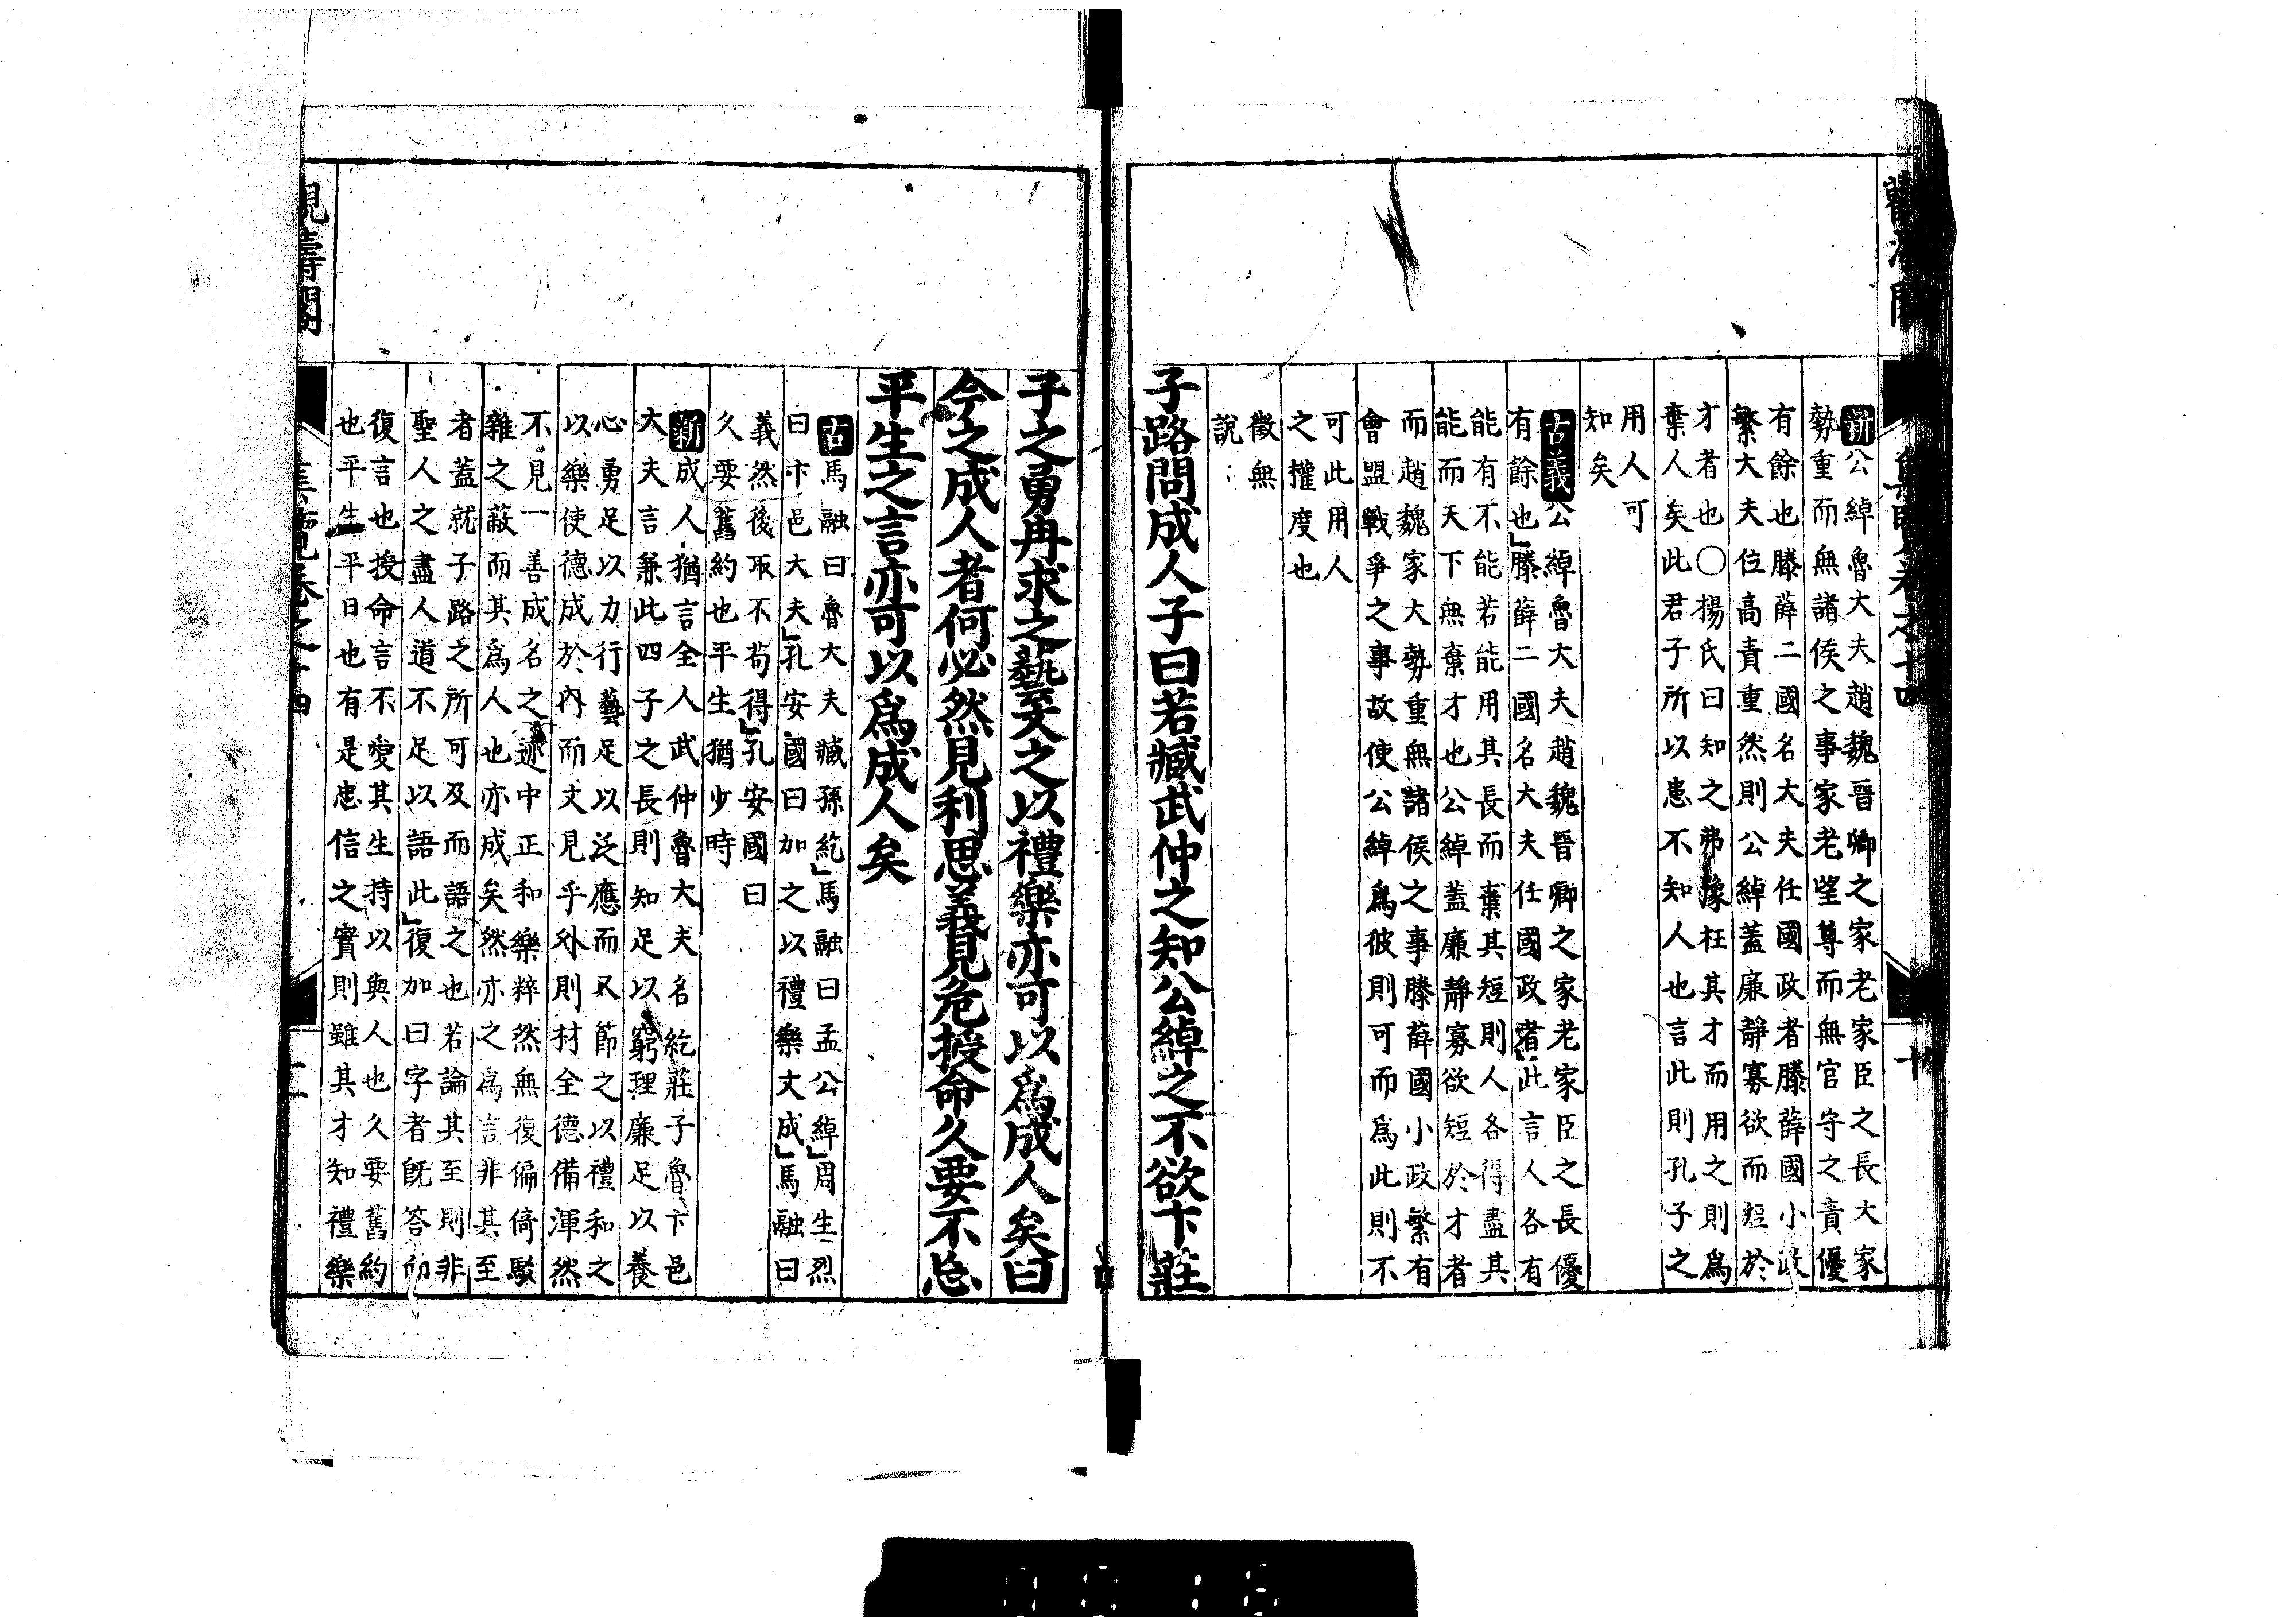 新公綽魯大夫趙魏晉卿之家老家臣之長大家
勢重而無諸侯之事家老望尊而無官守之責優
有餘也滕薛二國名大夫任國政者滕薛國小政
繁大夫位高責重然則公綽蓋廉靜寡欲而短於
才者也〇揚氏曰知之弗豫枉其才而用之則爲
棄人矣此君子所以患不知人也言此則孔子之
用人可
知矣
古義公綽魯大夫趙魏晉卿之家老家臣之長優
有餘也」滕薛二國名大夫任國政者」此言人各有
能有不能若能用其長而棄其短則人各得盡其
能而天下無棄才也公綽蓋廉靜寡欲短於才者
而趙魏家大勢重無諸侯之事滕薛國小政繁有
會盟戰爭之事故使公綽爲彼則可而爲此則不
可此用人
之權度也
徵無
說
子路問成人子曰若臧武仲之知公綽之不欲卞莊
子之勇冉求之藝文之以禮樂亦可以爲成人矣曰
今之成人者何必然見利思義見危授命久要不忘
平生之言亦可以爲成人矣
古馬融曰魯大夫臧孫紇」馬融曰孟公綽」周生烈
曰卞邑大夫」孔安國曰加之以禮樂文成」馬融曰
義然後取不苟得」孔安國曰
久要舊約也平生猶少時
新成人猶言全人武仲魯大夫名紇莊子魯卞邑
大夫言兼此四子之長則知足以窮理廉足以養
心勇足以力行藝足以泛應而又節之以禮和之
以樂使德成於內而文見乎外則材全德備渾然
不見一善成名之迹中正和樂粹然無復偏倚駁
雜之蔽而其爲人也亦成矣然亦之爲言非其至
者蓋就子路之所可及而語之也若論其至則非
聖人之盡人道不足以語此」復加曰字者旣答而
復言也授命言不愛其生持以與人也久要舊約
也平生平日也有是忠信之實則雖其才知禮樂
觀濤閣
集覽卷之十四
十一